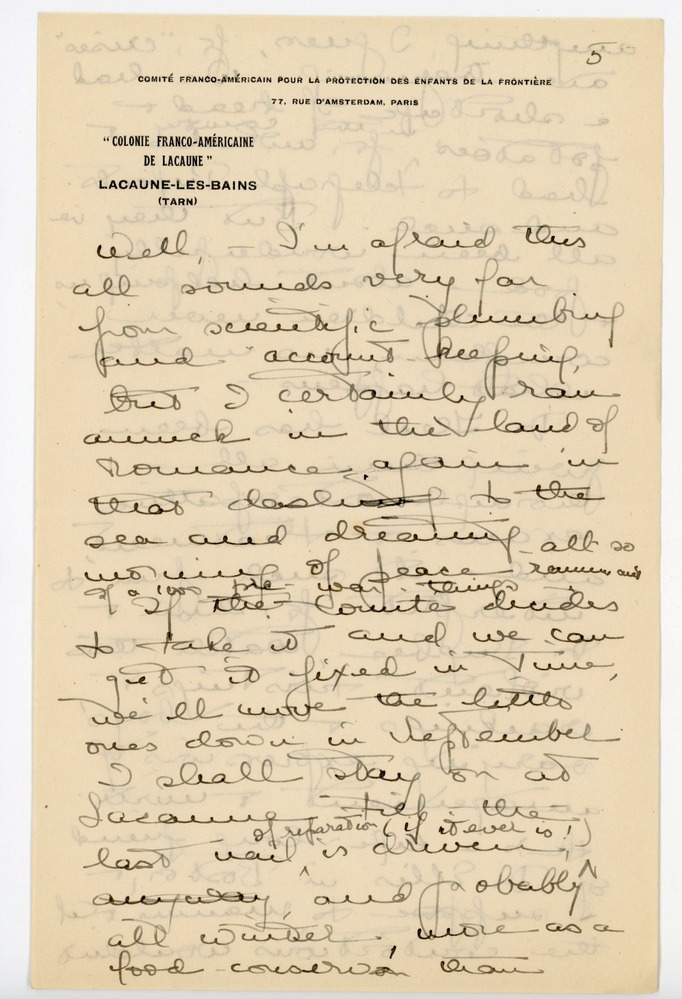 5
COMITÉ FRANCO-AMÉRICAIN POUR LA PROTECTION DES ENFANTS DE LA FRONTIÈRE
77, RUE D'AMSTERDAM, PARIS
" COLONIE FRANCO-AMÉRICAINE
DE LACAUNE "
LACAUNE-LES-BAINS
(TARN)
Well, - I'm afraid this
all sounds very far
from scientific plumbing
and account keeping,
but I certainly ran
amuck in the land of
Romance again in
that dashing to the
sea and dreaming all so
morning of peace
of a pre-war things
If the Comité decides
to take it and we can
get it fixed in time,
we'll move the little
ones down in September
I shall stay on at
Lacaune till the
of reparation (if it ever is!)
last nail is driven,
anyway, and probably
all winter, more as a
food conserver than